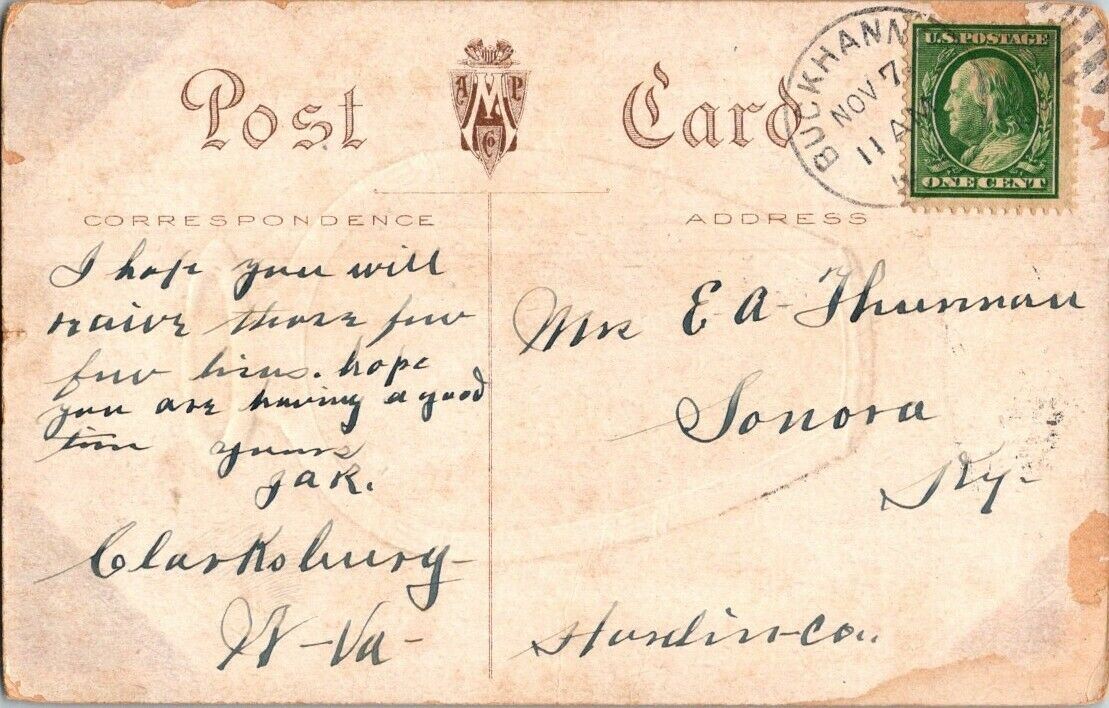 Post Card
A M P
Co
BUCKHANN
NOV 7
11 AM
U.S. POSTAGE
ONE CENT
CORRESPONDENCE
ADDRESS
I hope you will
raive those few
few lines. hope
you are having a good
time yours
JAK.
Clarksburg-
W-Va-
Mrs E-A-Thurman
Sonora
Ky-
Hardin-co..